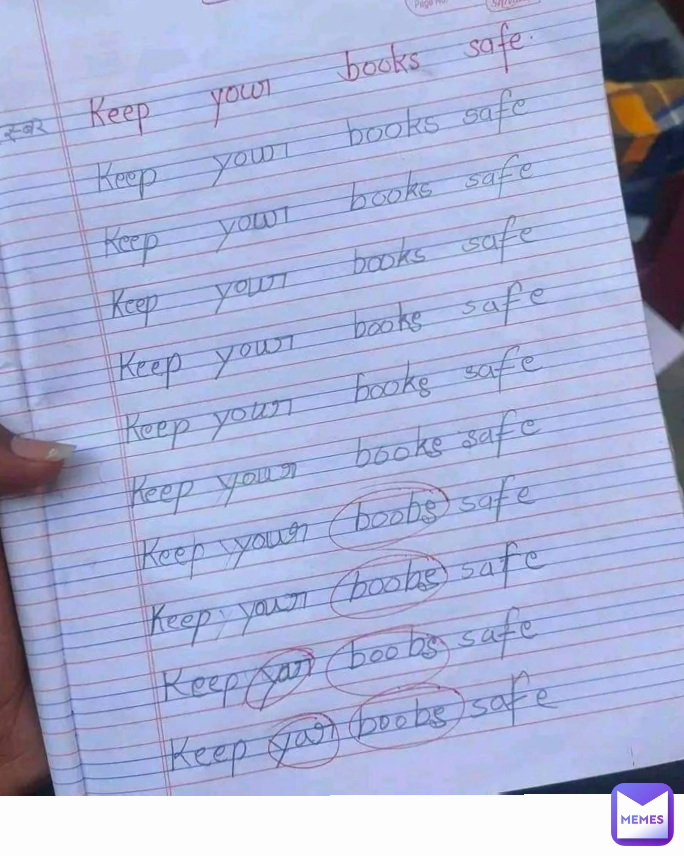 Keep your books safe.
Keep your books safe
Keep your books safe
Keep your books safe
Keep your books safe
Keep your books safe
Keep your books safe
Keep your boobs safe
Keep your boobs safe
Keep yar boobs safe
Keep yar boobs safe
MEMES